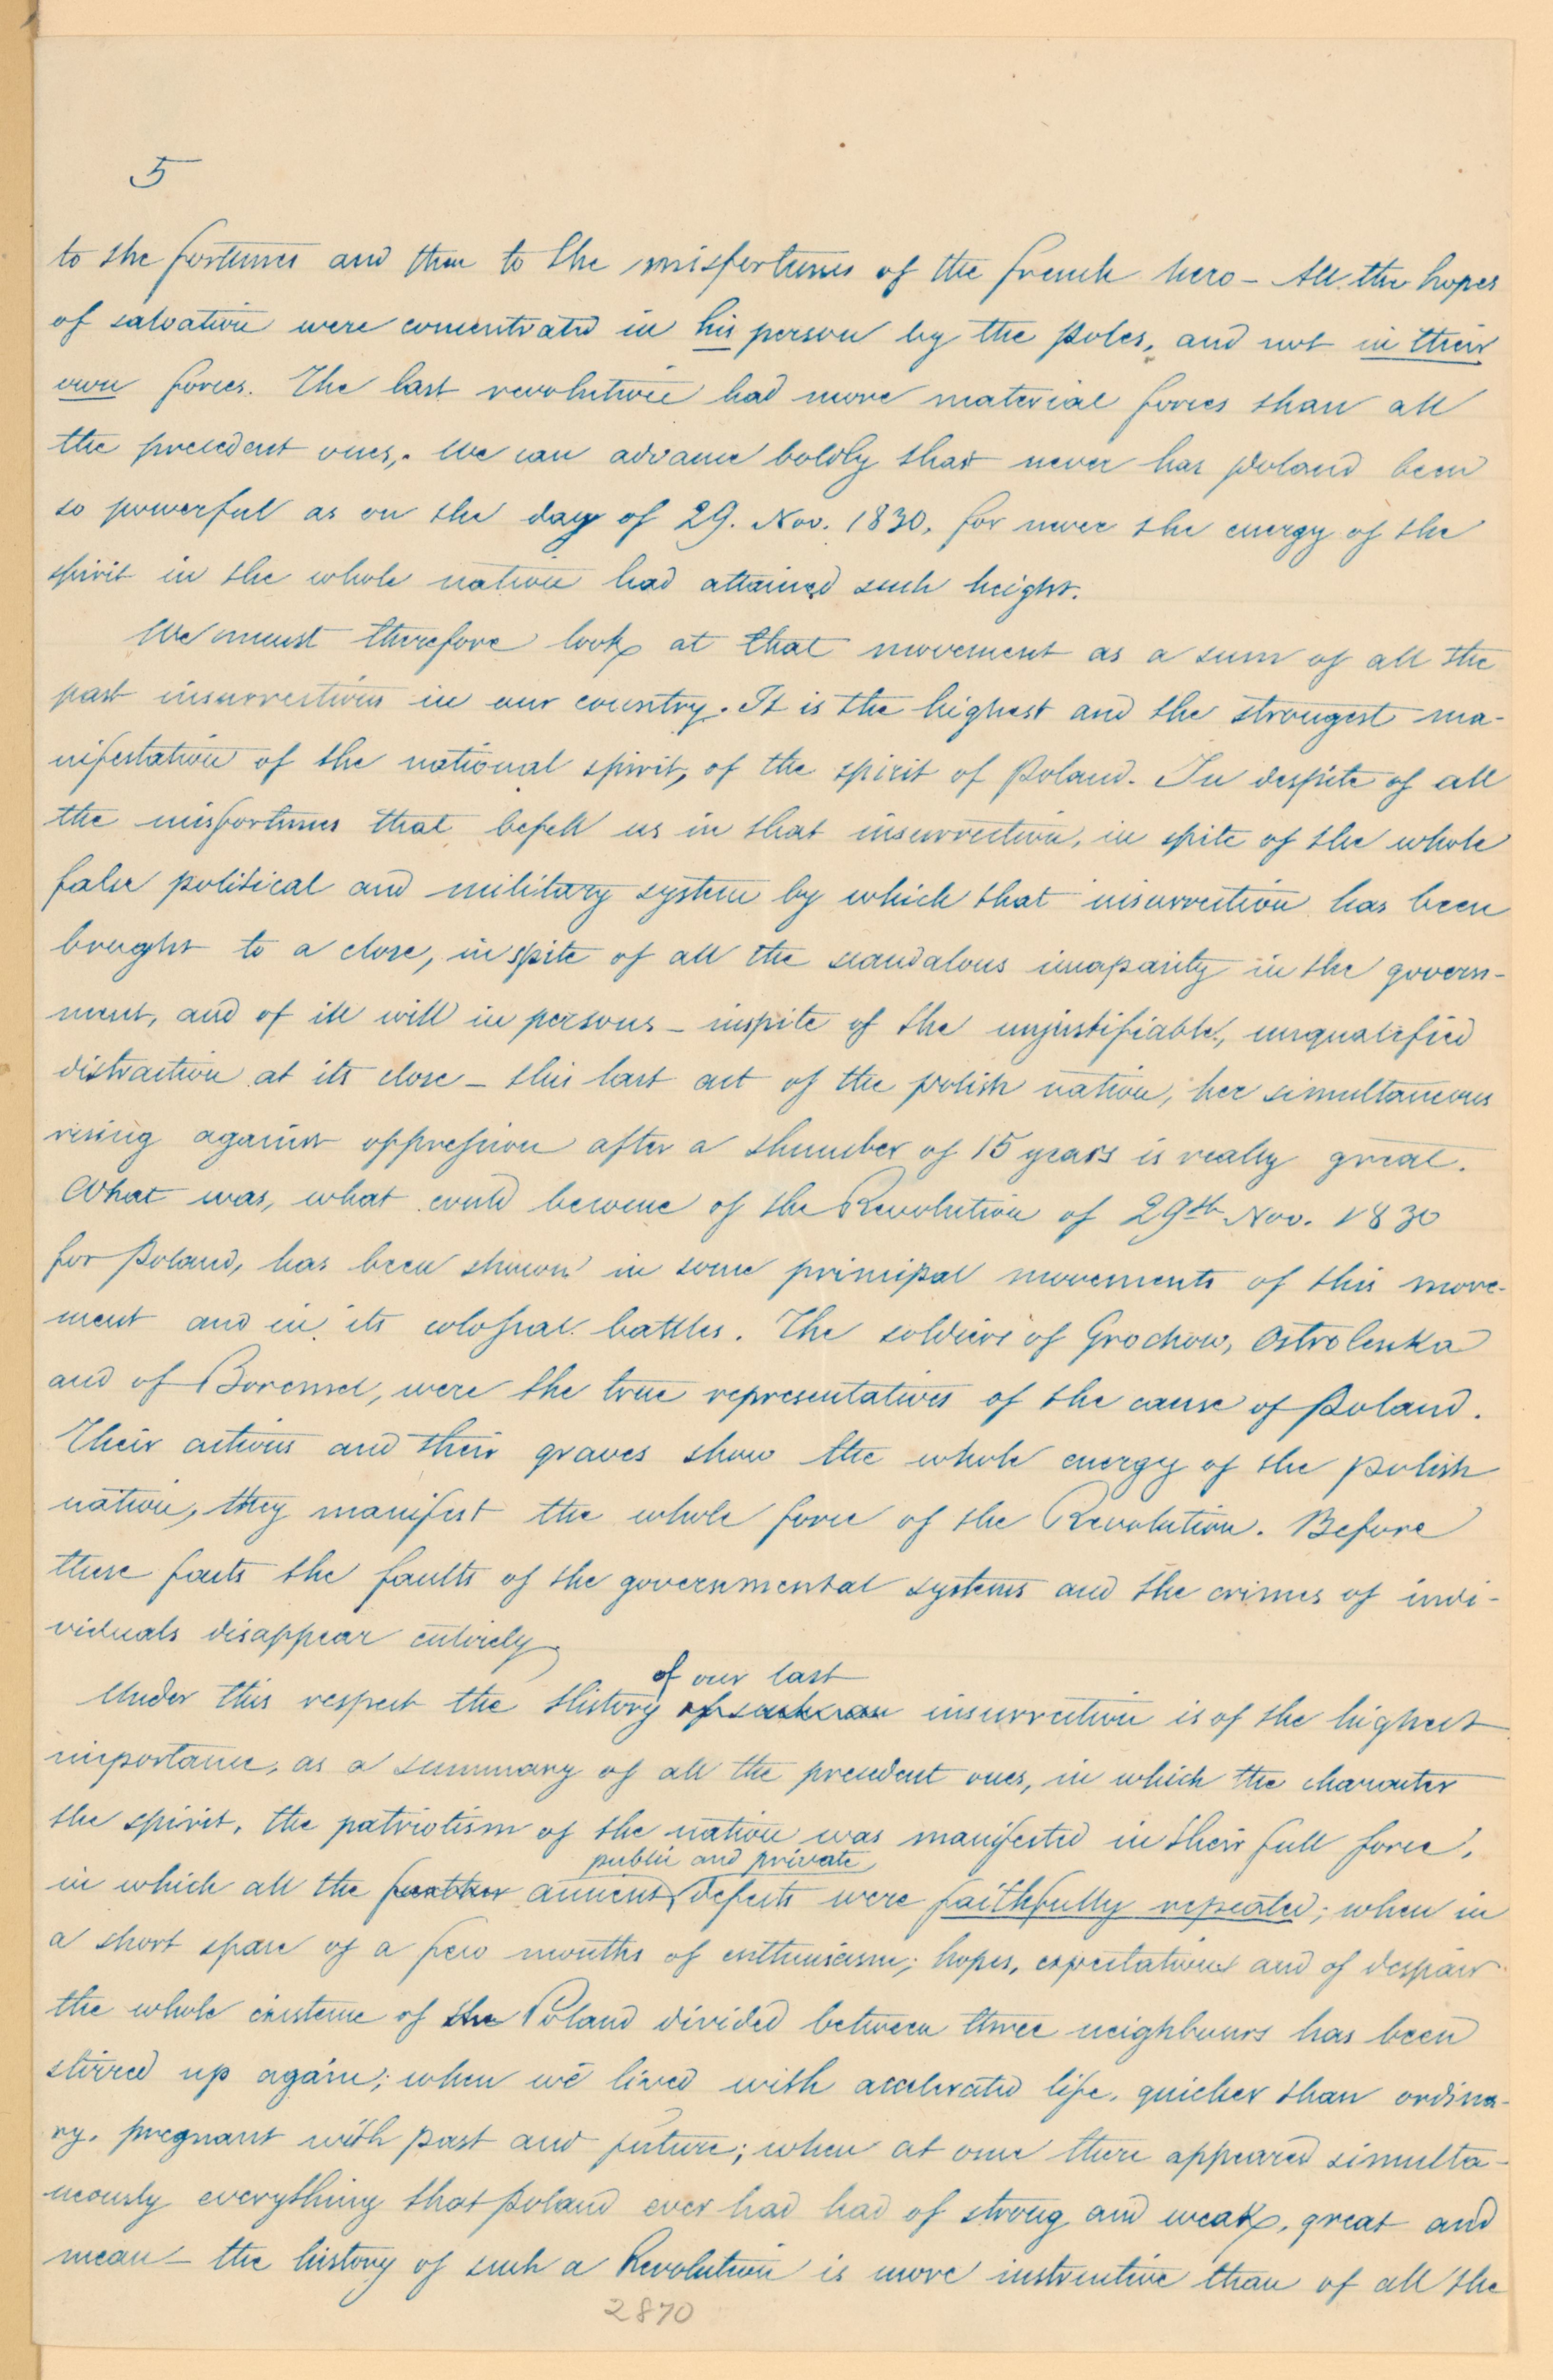 5
to the fortunes and then to the misfortunes of the french hero – All the hopes
of salvation were concentrated in his person by the Poles, and not in their
own forces. The last revolution had more material forces than all
the precedent ones,. We can advance boldly that never has Poland been
so powerful as on the day of 29. Nov. 1830, for never the energy of the
spirit in the whole nation had attained such height.
We must therefore look at that movement as a sum of all the
past insurrections in our country. It is the highest and the strongest ma-
nifestation of the national spirit, of the spirit of Poland. In despite of all
the misfortunes that befell us in that insurrection, in spite of the whole
false political and military system by which that insurrection has been
brought to a close, in spite of all the scandalous incapacity in the govern-
ment, and of ill will in persons – inspite of the unjustifiable, unqualified
distraction at its close – this last act of the polish nation, her simultaneous
rising against oppression after a slumber of 15 years is really great.
What was, what could become of the Revolution of 29th Nov. 1830
for Poland, has been shown in some principal movements of this move-
ment and in its colossal battles. The soldiers of Grochow, Ostrolenka
and of Boremel, were the true representatives of the cause of Poland.
Their actions and their graves show the whole energy of the polish
nation, they manifest the whole force of the Revolution. Before
these facts the faults of the governmental systems and the crimes of indi-
viduals disappear entirely
of our last
Under this respect the History of such an insurrection is of the highest
importance, as a summary of all the precedent ones, in which the character
the spirit, the patriotism of the nation was manifested in their full force,
public and private
in which all the further ancient defects were faithfully repeated; when in
a short space of a few months of enthusiasm; hopes, expectations and of despair
the whole existence of the Poland divided between three neighbours has been
stirred up again; when we lived with accelerated life, quicker than ordina-
ry, pregnant with past and future; when at once there appeared simulta-
neously everything that Poland ever had had of strong and weak, great and
mean – the history of such a Revolution is more instructive than of all the
2870